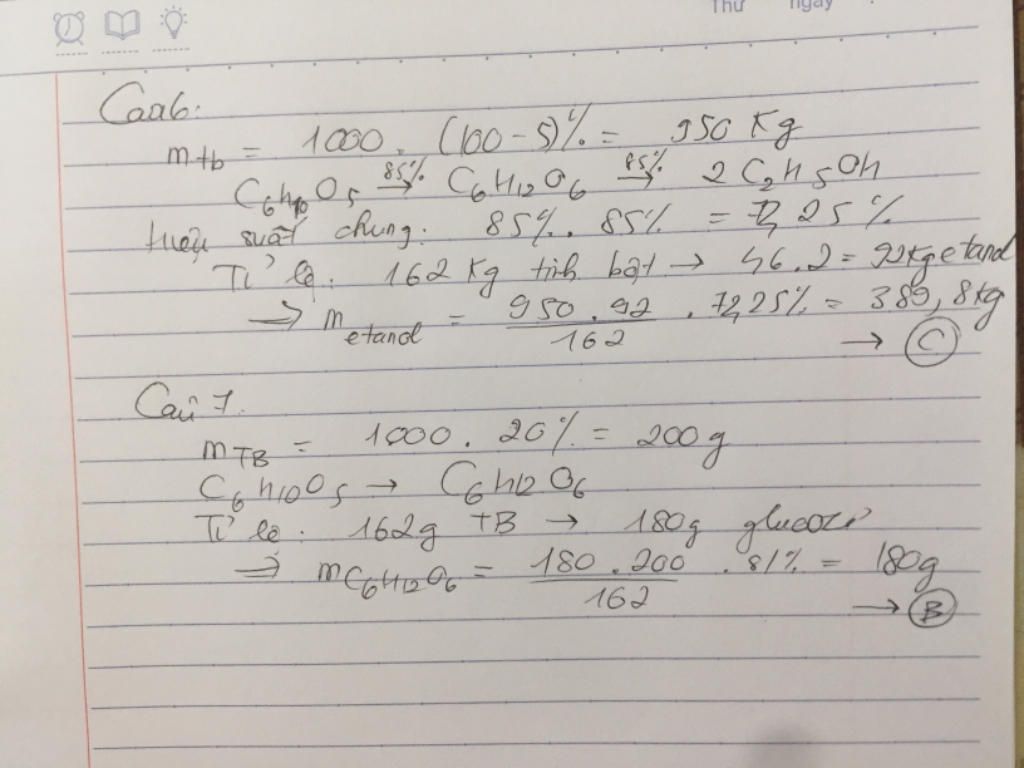 Thứ ngày
Câu 6:
m tb = 1000 . (100 - 5)% = 950 Kg
C6H10O5 85%→ C6H12O6 85%→ 2 C2H5OH
Hiệu suất chung: 85% . 85% = 72,25%
Tỉ lệ: 162 Kg tinh bột → 46.2 = 92kg etanol
⇒ m etanol = 950 . 92 / 162 . 72,25% = 389,8 kg
→ C
Câu 7.
mTB = 1000 . 20% = 200g
C6H10O5 → C6H12O6
Tỉ lệ: 162g TB → 180g glucozơ
⇒ mC6H12O6 = 180 . 200 / 162 . 81% = 180g
→ B